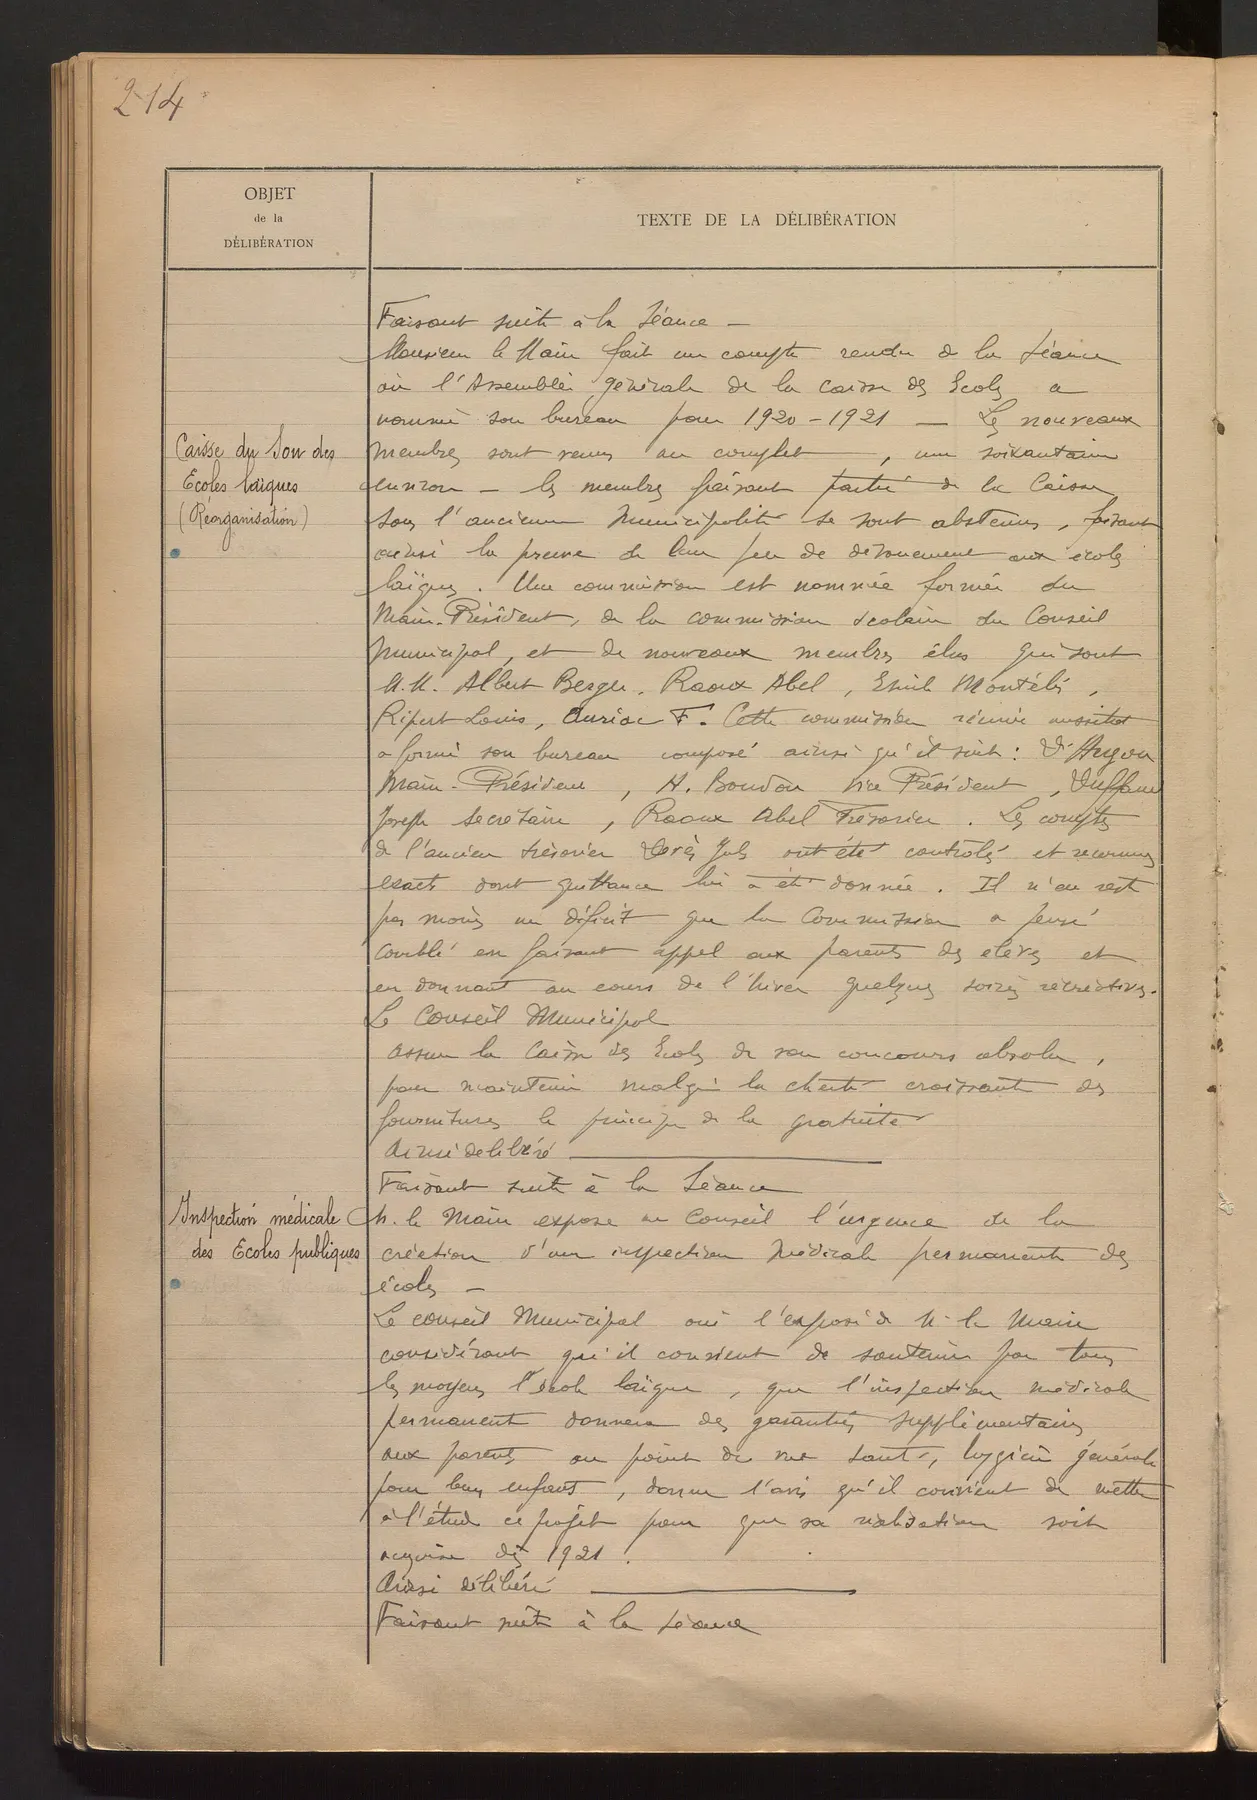 214
OBJET
de la
DÉLIBÉRATION
TEXTE DE LA DÉLIBÉRATION
Caisse du Sou des
Ecoles laïques
(Réorganisation)
Faisant suite à la Séance —
Monsieur le Maire fait un compte rendu de la séance
où l'Assemblée générale de la caisse des Ecoles a
nommé son bureau pour 1920-1921 — Les nouveaux
membres sont venus au complet, une soixantaine
environ — les membres faisant partie de la Caisse
sous l'ancienne Municipalité se sont abstenus, faisant
ainsi la preuve de leur peu de dévouement aux écoles
laïques. Une commission est nommée formée du
Maire-Président, de la commission scolaire du Conseil
Municipal, et de nouveaux membres élus qui sont
M.M. Albert Berger, Raoux Abel, Emile Montélis,
Ripert Louis, Auriac F. Cette commission réunie aussitôt
a formé son bureau composé ainsi qu'il suit :
Maire-Président, H. Bourdon Vice Président,
Joseph Secrétaire, Raoux Abel Trésorier. Les comptes
de l'ancien trésorier Jules ont été contrôlés et reconnus
exacts dont quittance lui a été donnée. Il n'en reste
pas moins un déficit que la Commission a pensé
comblé en faisant appel aux parents des élèves et
en donnant au cours de l'hiver quelques soirées récréatives.
Le Conseil Municipal
assure la Caisse des Ecoles de son concours absolu,
pour maintenir malgré la cherté croissante des
fournitures le principe de la gratuité
Ainsi délibéré
Faisant suite à la Séance
Inspection médicale
des Ecoles publiques
M. le Maire expose au Conseil l'urgence de la
création d'une inspection Médicale permanente des
écoles —
Le conseil Municipal ouï l'exposé de M. le Maire
considérant qu'il convient de soutenir par tous
les moyens l'école laïque, que l'inspection médicale
permanente donnera des garanties supplémentaires
aux parents au point de vue santé, hygiène générale
pour leurs enfants, donne l'avis qu'il convient de mettre
à l'étude ce projet pour que sa réalisation soit
acquise dès 1921.
Ainsi délibéré
Faisant suite à la séance